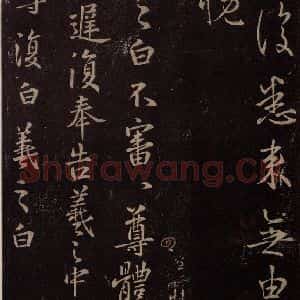 復悉來無由
悅
之白不審、尊體
遲復奉告羲之中
尋復白羲之白
Shufawang.cn